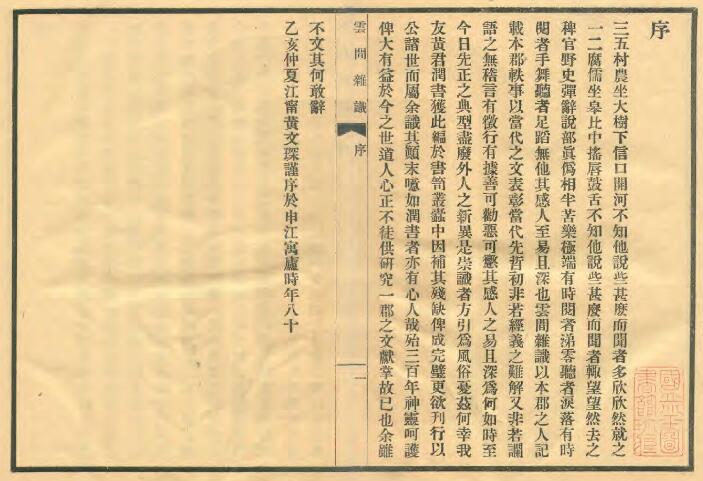 序
三五村農坐大樹下信口開河不知他說些甚麼而聞者多欣欣然就之
一二腐儒坐皋比中搖唇鼓舌不知他說些甚麼而聞者輙望望然去之
稗官野史彈辭說部眞僞相半苦樂極端有時閱者涕零聽者淚落有時
閱者手舞聽者足蹈無他其感人至易且深也雲間雜識以本郡之人記
載本郡軼事以當代之文表彰當代先哲初非若經義之難解又非若讕
語之無稽言有徵行有據善可勸惡可懲其感人之易且深爲何如時至
今日先正之典型盡廢外人之新異是崇識者方引爲風俗憂茲何幸我
友黃君潤書獲此編於書笥叢蠹中因補其殘缺俾成完璧更欲刊行以
公諸世而屬余識其顚末噫如潤書者亦有心人哉殆三百年神靈呵護
俾大有益於今之世道人心正不徒供研究一郡之文獻掌故已也余雖
雲間雜識
序
一
不文其何敢辭
乙亥仲夏江甯黃文琛謹序於申江寓廬時年八十